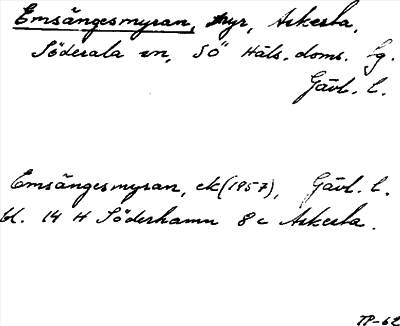 Emsängesmyran, myr, Askesta,
Söderala sn, SÖ Häls. doms. lg.
Gävl. l.
Emsängesmyran, ek (1957), Gävl. l.
bl. 14 H Söderhamn 8 c Askesta.
TP-62